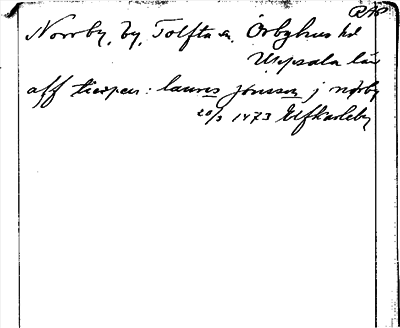 RAP
Norrby, by, Tolfta sn. Örbyhus hd
Uppsala län
aff tierpen: lauris jönsson j nørby
20/3 1473 Elfkarleby